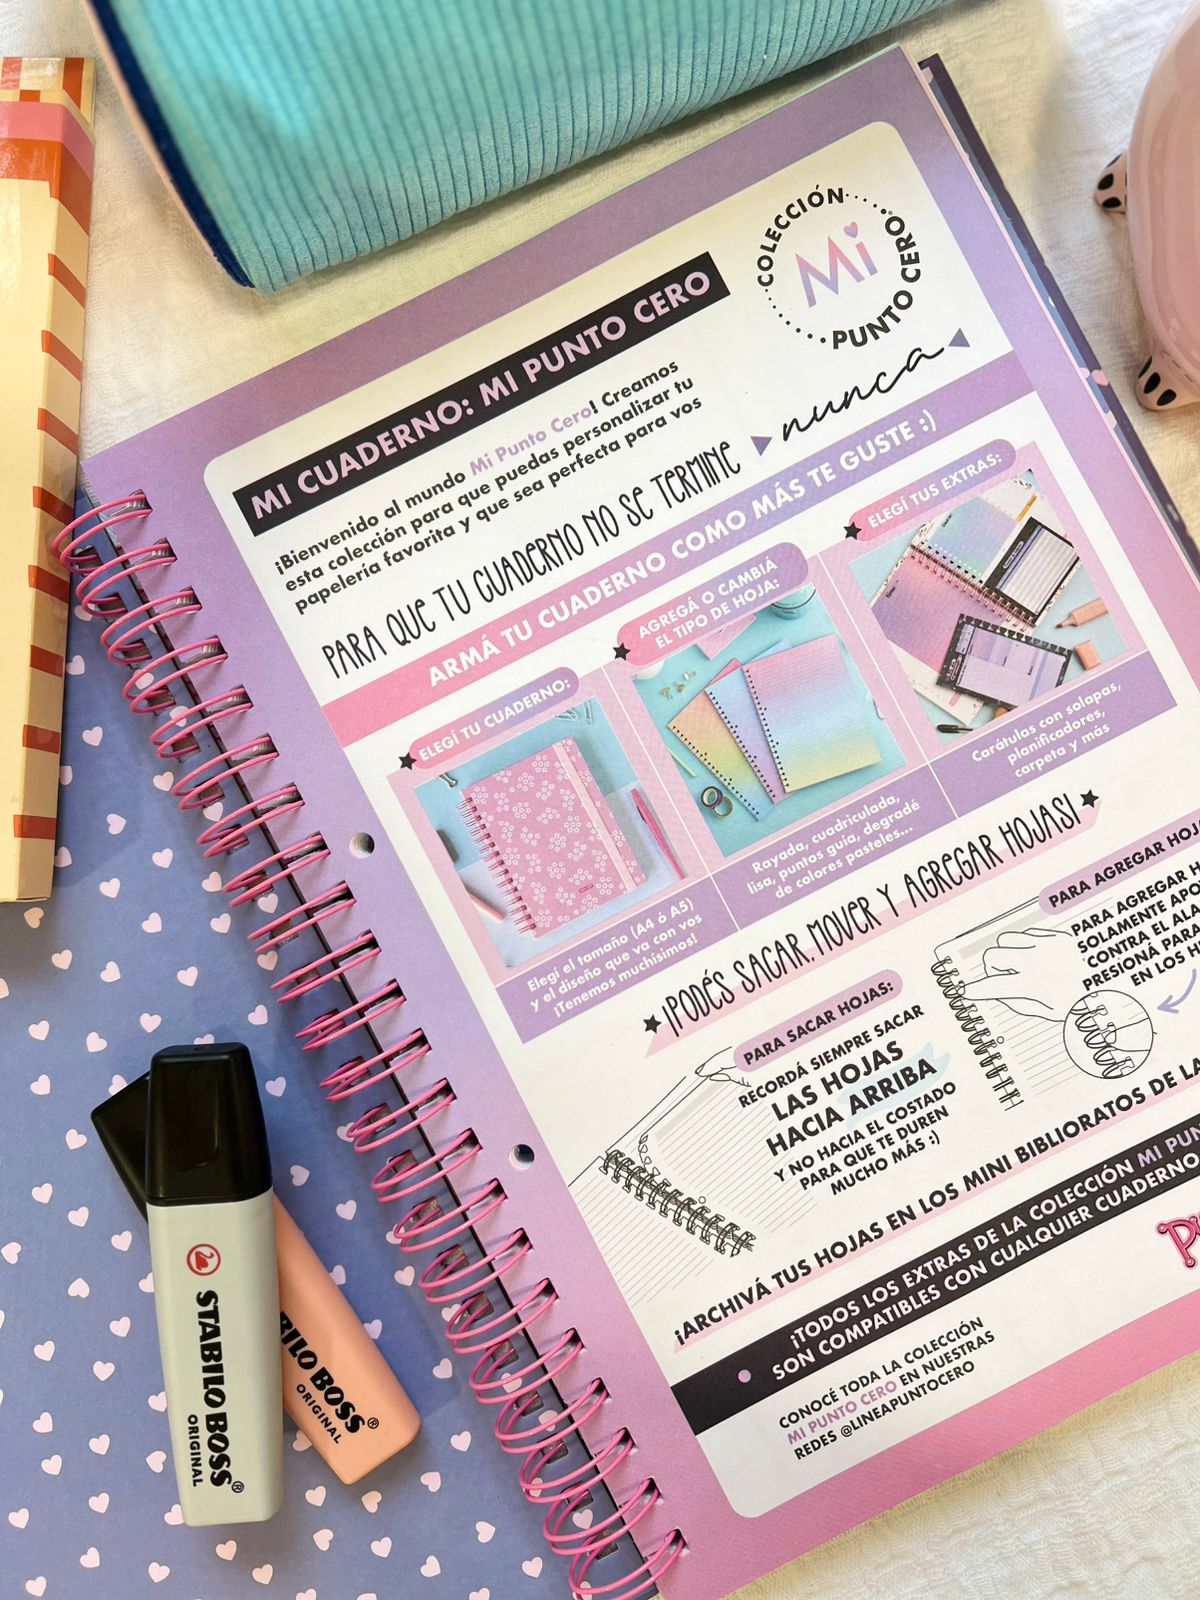 COLECCIÓN
Mi
PUNTO CERO®
MI CUADERNO: MI PUNTO CERO
¡Bienvenido al mundo Mi Punto Cero! Creamos
esta colección para que puedas personalizar tu
papelería favorita y que sea perfecta para vos
PARA QUE TU CUADERNO NO SE TERMINE nunca
ARMÁ TU CUADERNO COMO MÁS TE GUSTE :)
ELEGÍ TU CUADERNO:
Elegí el tamaño (A4 ó A5)
y el diseño que va con vos
¡Tenemos muchísimos!
AGREGÁ O CAMBIÁ
EL TIPO DE HOJA:
Rayada, cuadriculada,
lisa, puntos guía, degradé
de colores pasteles...
ELEGÍ TUS EXTRAS:
Carátulas con solapas,
planificadores,
carpeta y más
¡PODÉS SACAR, MOVER Y AGREGAR HOJAS!
PARA SACAR HOJAS:
RECORDÁ SIEMPRE SACAR
LAS HOJAS
HACIA ARRIBA
Y NO HACIA EL COSTADO
PARA QUE TE DUREN
MUCHO MÁS :)
PARA AGREGAR
PARA AGREGAR
SOLAMENTE
CONTRA EL
PRESIONÁ
EN LOS
¡ARCHIVÁ TUS HOJAS EN LOS MINI BIBLIORATOS DE
¡TODOS LOS EXTRAS DE LA COLECCIÓN MI
SON COMPATIBLES CON CUALQUIER CUADERNO
CONOCÉ TODA LA COLECCIÓN
MI PUNTO CERO EN NUESTRAS
REDES @LINEAPUNTOCERO
STABILO BOSS®
ORIGINAL
BOSS®
ORIGINAL